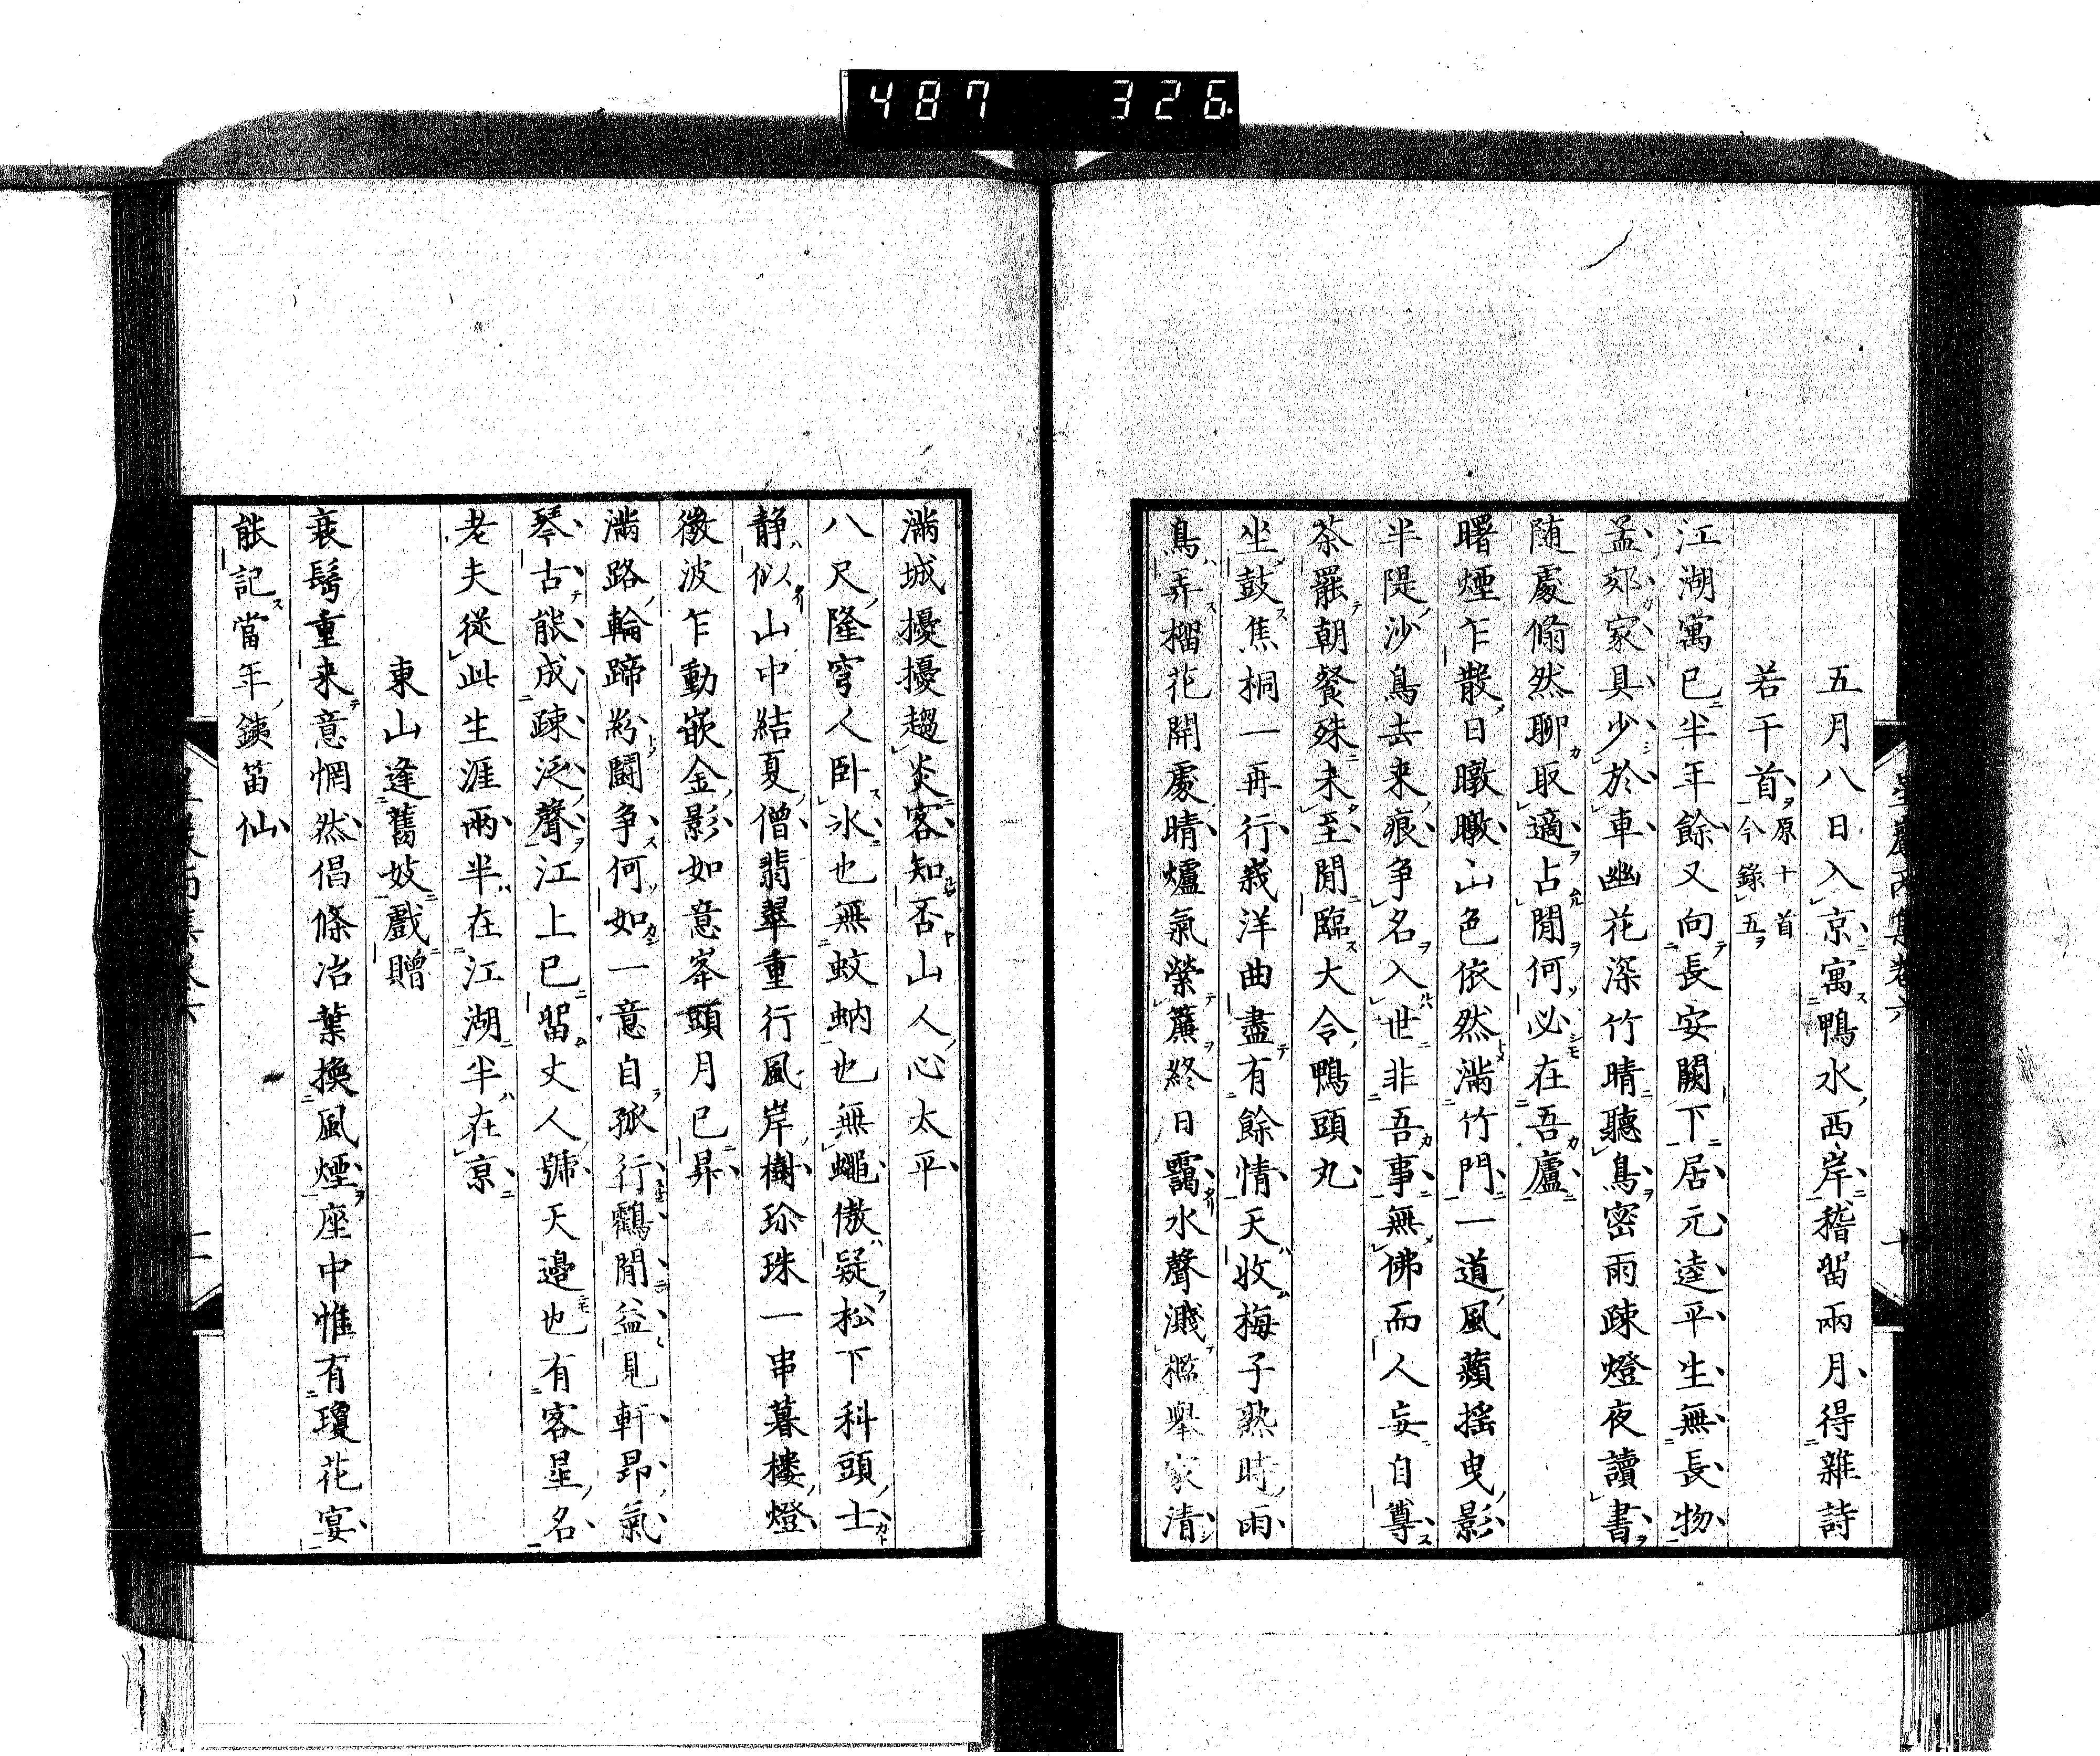 487 326
五月八日入京寓鴨水西岸稽留兩月得雜詩
若干首原十首今錄五
江湖寓已半年餘又向長安闕下居元逵平生無長物
孟郊家具少於車幽花深竹晴聽鳥密雨疎燈夜讀書
随處翛然聊取適占閒何必在吾廬
曙煙乍散日暾暾山色依然滿竹門一道風蘋搖曳影
半隄沙鳥去来痕争名入世非吾事無佛而人妄自尊
茶罷朝餐殊未至閒臨大令鴨頭丸
坐鼓焦桐一再行峩洋曲盡有餘情天收梅子熟時雨
鳥弄榴花開處晴爐氣縈簾終日靄水聲濺檻舉家清
滿城擾擾趨炎客知否山人心太平
八尺隆穹人臥氷也無蚊蚋也無蠅傲疑松下科頭士
静似山中結夏僧翡翠重行風岸樹珍珠一串暮樓燈
微波乍動嵌金影如意峯頭月已昇
滿路輪蹄紛鬪争何如一意自孤行鸛閒益見軒昂氣
琴古能成疎泛聲江上已留丈人號天邊也有客星名
老夫從此生涯兩半在江湖半在京
東山逢舊妓戲贈
衰鬢重来意惘然倡條冶葉換風煙座中惟有瓊花宴
能記當年銕笛仙